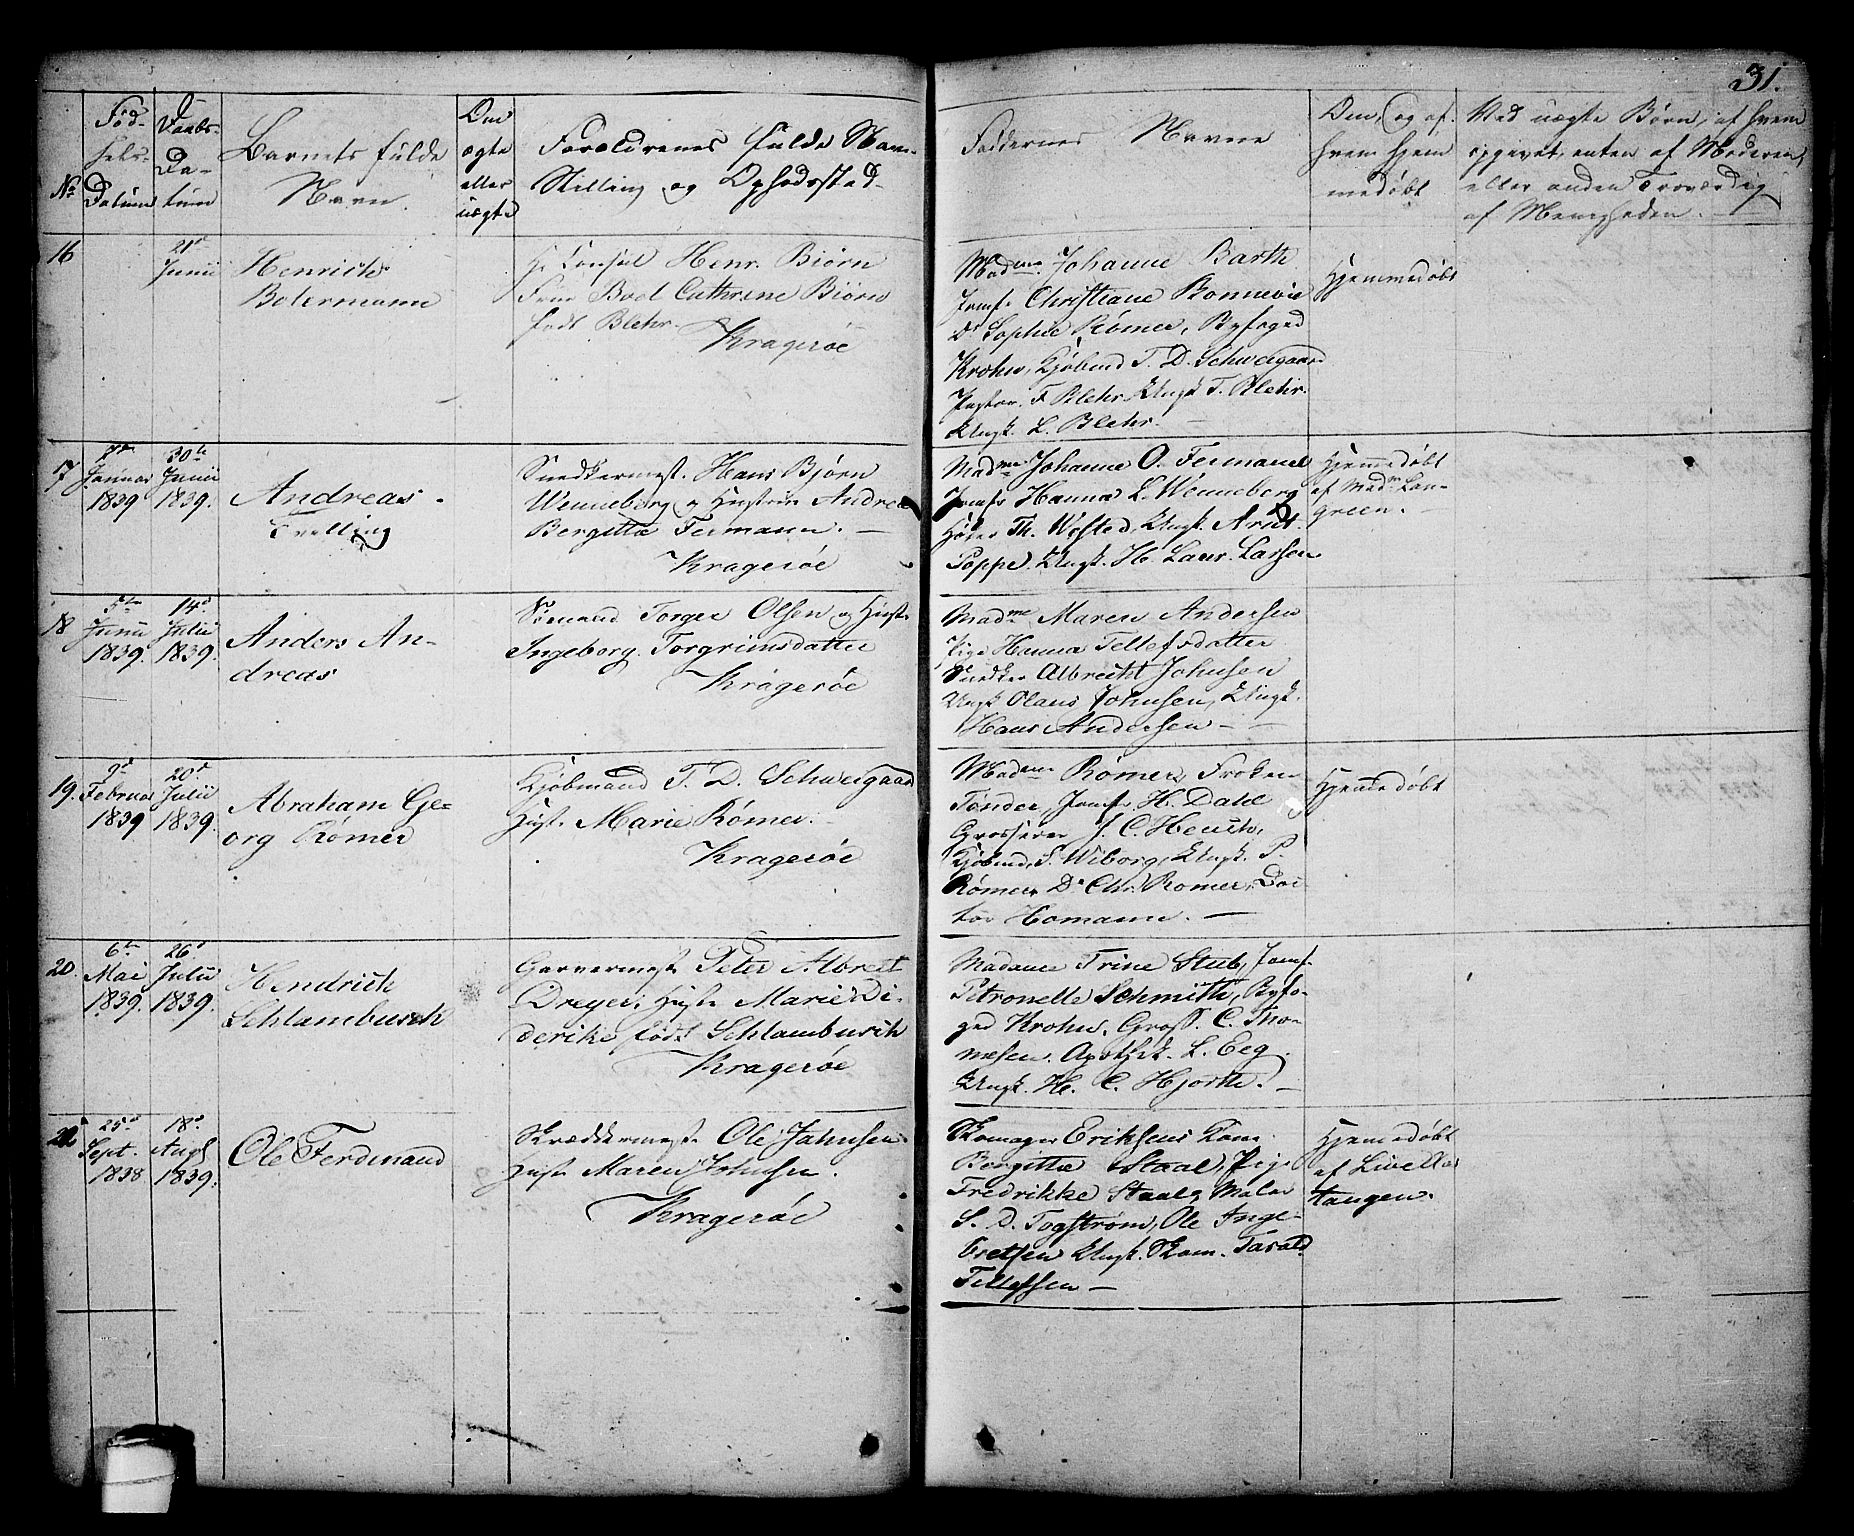 31.
No
Fød-
sels-
Datum
Daabs-
Da-
tum
Barnets fulde
Navn.
Om
ægte
eller
uægte
Forældrenes fulde Navn
Stilling og Opholdsted
Faddernes Navne
Om, og af
hvem hjem
medøbt
Ved uægte Børn, af hvem
opgivet, enten af Moderen,
eller anden Troværdig
af Menigheden.
16
21d
Junii
Henrich
Bolermann
Hr Consul Henr. Biørn
Frue Boel Cathrine Biørn
født Blehr.
Kragerøe
Madme. Johanne Barth
Jomfr Christiane Bonnevie
Do Sophie Rømer, Byfoged
Krohn, Kjøbmd T. D. Schweigaard
Pastor F. Blehr, Ungk T. Blehr.
Ungk. L. Blehr.
Hjemmedøbt
17
Januar
1839
30te
Junii
1839.
Andreas
Tvilling
Snedkermest. Hans Bjørn
Wenneberg og Hustru Andrea
Bergitta Fermann.
Kragerøe
Madme Johanne O. Fermann
Jomfr Hanna L. Wenneberg
Th. Wøsted, Ungk. Arnt
Poppe. Ungk. H. Laur. Larsen
Hjemmedøbt
af Madm Lan-
green.
18
5te
Junii
1839.
14d
Julii
1839.
Anders An-
dreas
Sømand Torger Olsen og Hust.
Ingeborg Torgrimsdatter
Kragerøe
Madme Maren Andersen
Pige Hanna Tellefsdatter
Snedker Albrecht Johnsen
Ungk Olaus Johnsen, Ungk.
Hans Andersen
19.
9d
Februar
1839
20d
Julii
1839.
Abraham Ge-
org Rømer
Kjøbmand T. D. Schweigaard
Hust. Marie Rømer.
Kragerøe
Madame Rømer, Frøken
Tønder, Jomfr H. Dahl
Grosserer J. C. Heuch,
Kjøbmd, S. Wiborg, Ungk. P.
Rømer, Do Chr. Romer, Doc-
tor Homann.
Hjemmedøbt
20.
6te
Mai
1839.
26d
Julii
1839.
Hendrich
Schlambusch
Garvermest. Peter Albrect
Dreyer, Hust. Marie Di-
derike født Schlambusch
Kragerøe
Madame Trine Stub, Jomf.
Petronelle Schmith, Byfo-
ged Krohn, Gross. C. Tho-
mesen. Apothk. L. Eeg.
Ungk. H. C. Hjorth.
25d
Sept.
1838
18d
Augs
1839.
Ole Ferdinand
Skræddermest. Ole Jahnsen
Hust Maren Johnsen.
Kragerøe
Skomager Eriksens Kone
Bergitta Staal, Pige
Fredrikke Staal, Maler
S. D. Togstrøm, Ole Inge-
bretsen Ungk. Skom. Tarald
Tellefsen
Hjemedøbt
af
tangen.